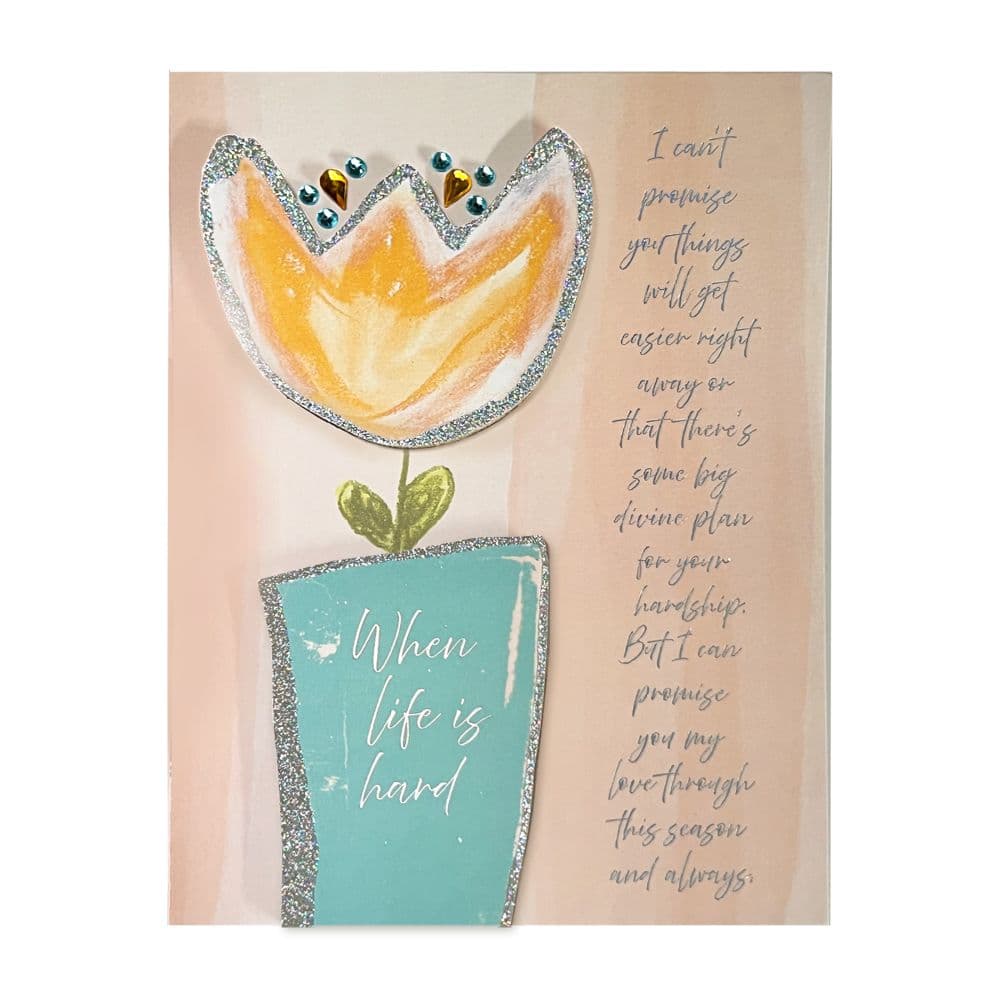 When
life is
hard
I can't
promise
you things
will get
easier right
away or
that there's
some big
divine plan
for your
hardship.
But I can
promise
you my
love through
this season
and always.